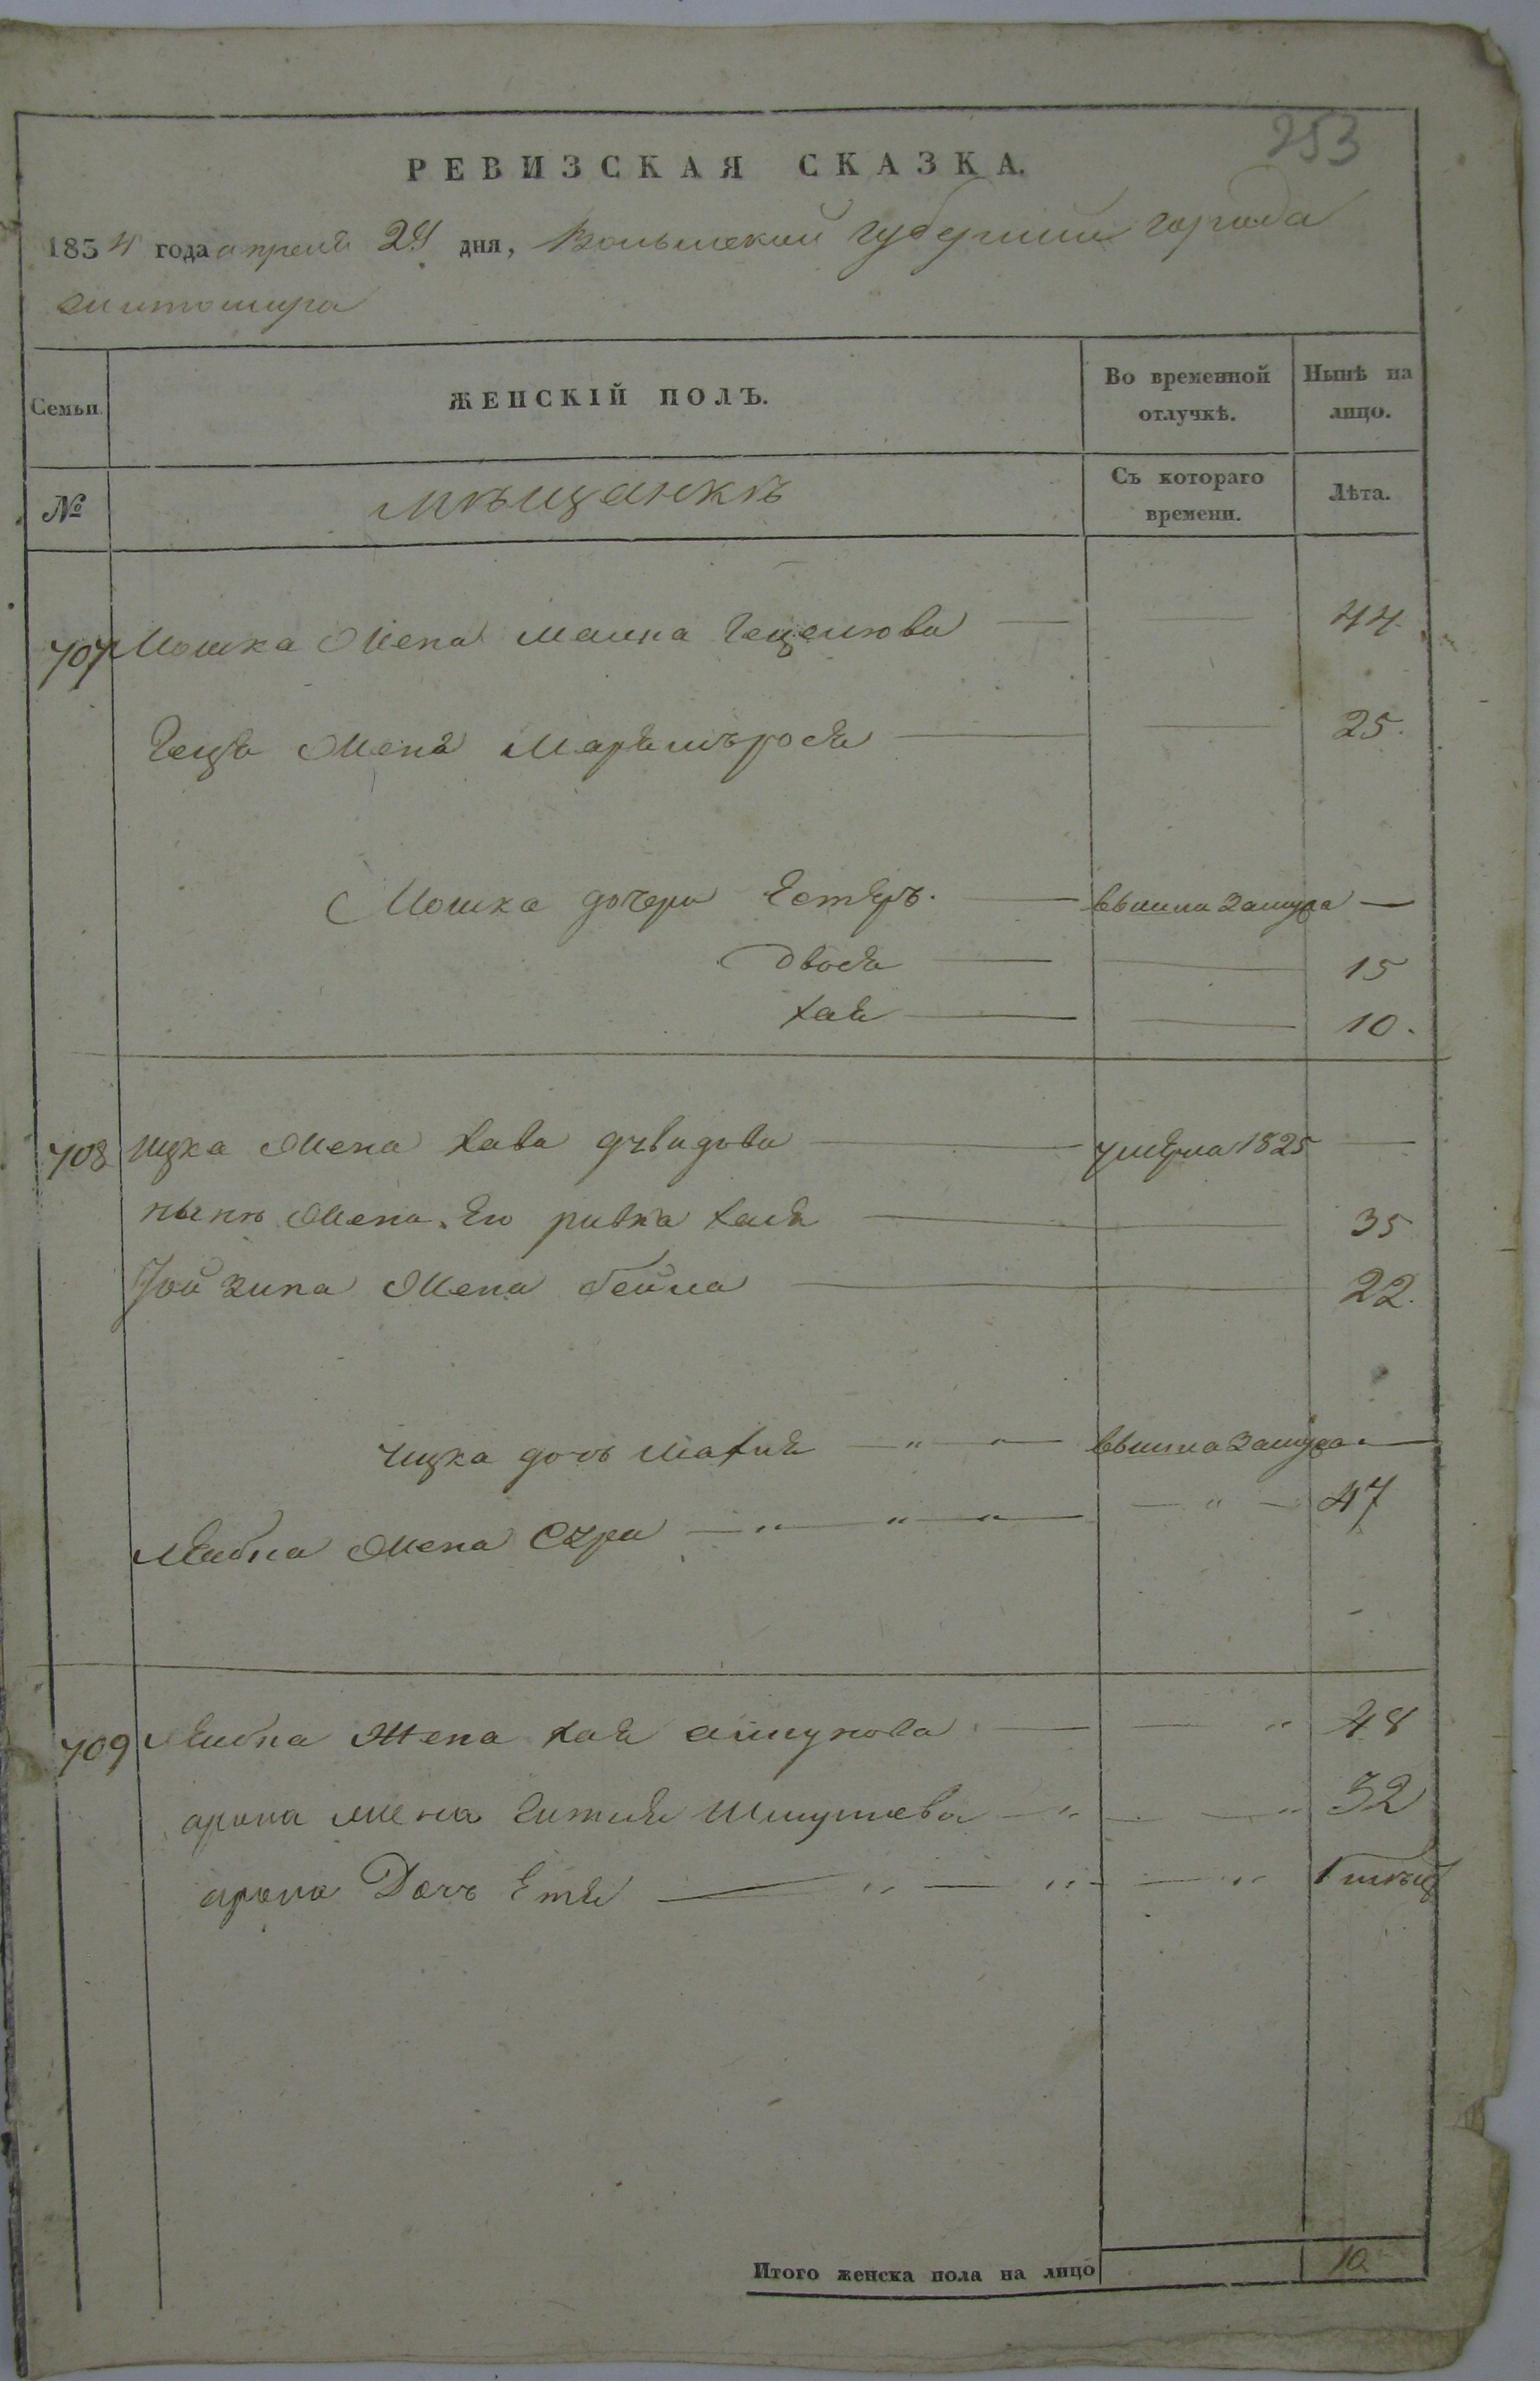 253
РЕВИЗСКАЯ СКАЗКА.
1834 года апреля 24 дня, Волынской губернии города
житомира
Семьи.
ЖЕНСКІЙ ПОЛЪ.
Во временной отлучкѣ.
Нынѣ на лицо.
№
мѣщанкѣ
Съ котораго времени.
Лѣта.
707 Мошка жена малка гецелова — — 44
гецѣя жена Марямърося — — 25.
Мошка дочери Естеръ. — вышла замужа —
двося — — 15
хая — — 10.
708 ицка жена хава — умерла 1825 —
нынѣ жена его ривка хая — — 35
жена бейла — 22.
ицка дочь — " — " — вышла замужа —
Лейбка жена Сура — " — " — " — — " — 47
709 Лейбка Жена хая — — " 48
арона жена гитля — " — — " 32
арона Дочъ Етя — " — " — — " 1 мѣсяц
Итого женска пола на лицо 10